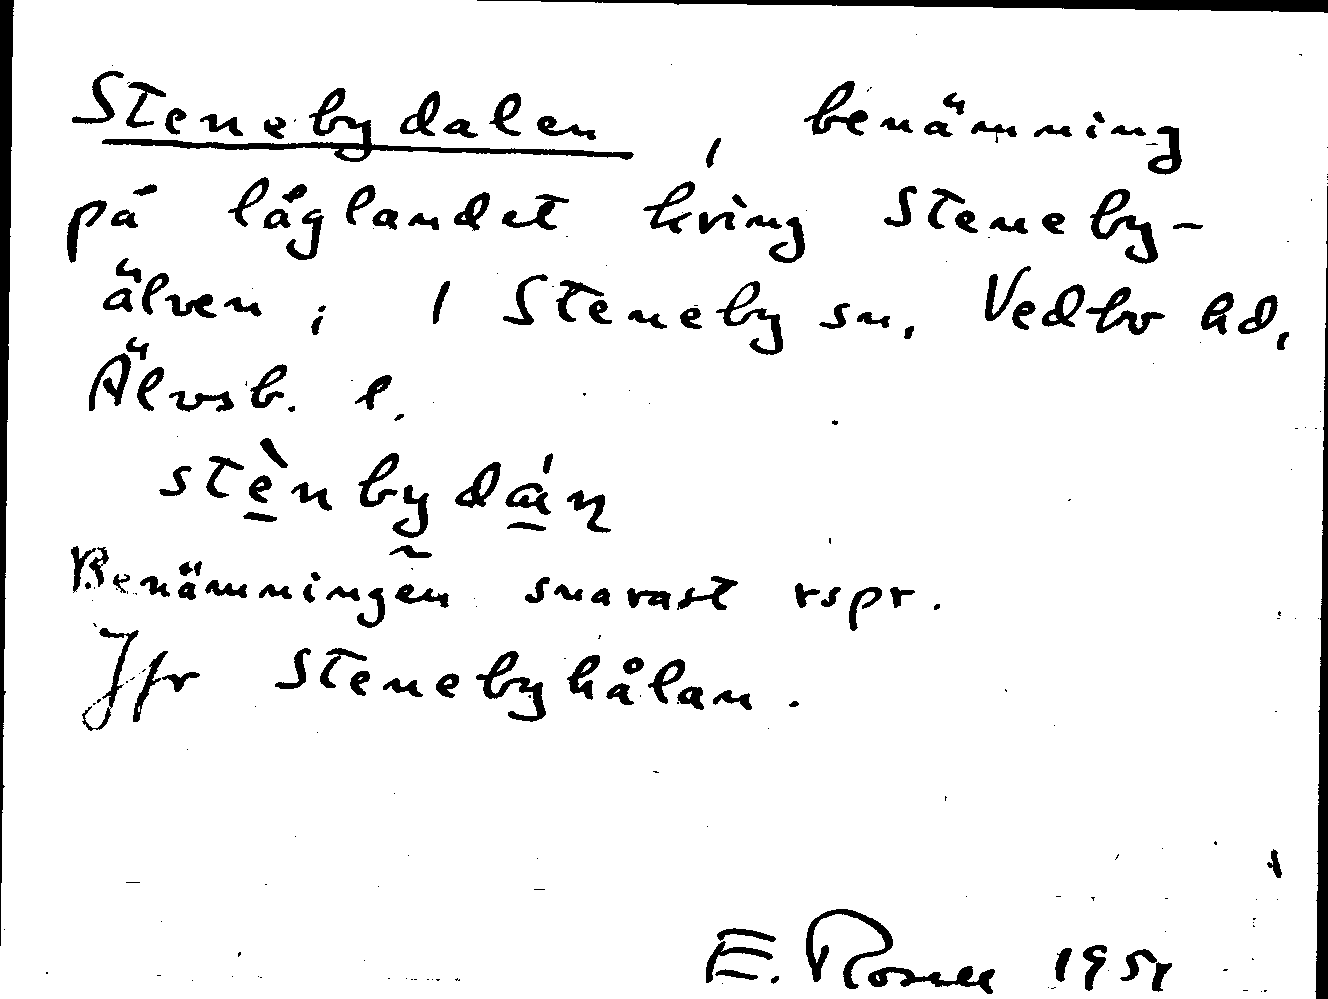 Stenebydalen, benämning
på låglandet kring Steneby-
älven, i Steneby sn, Vedbo hd,
Älvsb. l.
stènbydán
Benämningen snarast rspr.
Jfr Stenebyhålan.
E. Rosell 1951